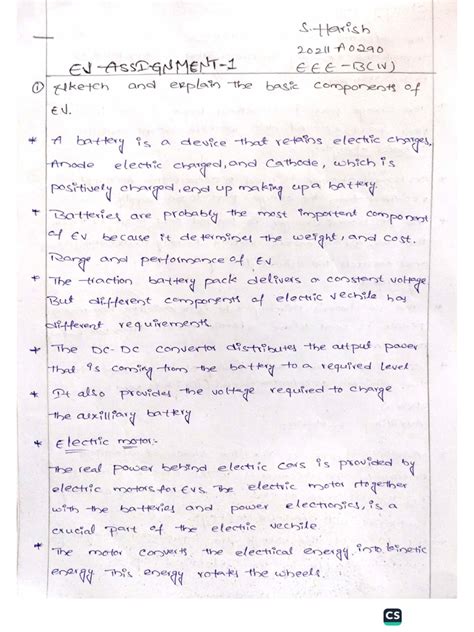 S. Harish
20211A0290
EV-ASSIGNMENT-1
EEE-B(IV)
① Sketch and explain the basic components of
EV.
* A battery is a device that retains electric charges,
Anode electric charged, and Cathode, which is
positively charged, end up making up a battery.
* Batteries are probably the most important component
of EV because it determines the weight, and cost.
Range and performance of EV.
* The traction battery pack delivers a constant voltage
But different components of electric vechile has
different requirements.
* The DC-DC convertor distributes the output power
that is coming from the battery to a required level
* It also provides the voltage required to charge
the auxilliary battery
* Electric motor:-
The real power behind electric cars is provided by
electric motors for EVs. The electric motor together
with the batteries and power electronics, is a
crucial part of the electric vechile.
* The motor converts the electrical energy into kinetic
energy This energy rotates the wheels.
CS